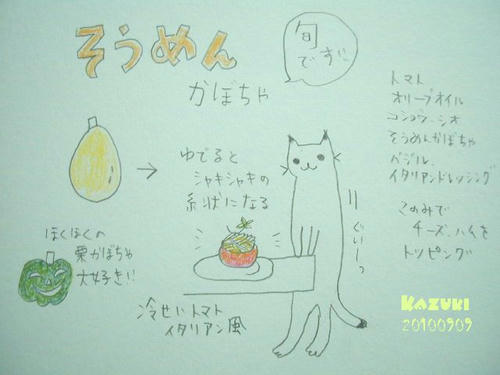 そうめん
かぼちゃ
旬
です!!
ゆでると
シャキシャキの
糸状になる
ほくほくの
栗かぼちゃ
大好き!!
冷せいトマト
イタリアン風
ぐいーっ
トマト
オリーブオイル
コショウ・シオ
そうめんかぼちゃ
バジル
イタリアンドレッシング
このみで
チーズ、ハムを
トッピング
KAZUKI
20100909